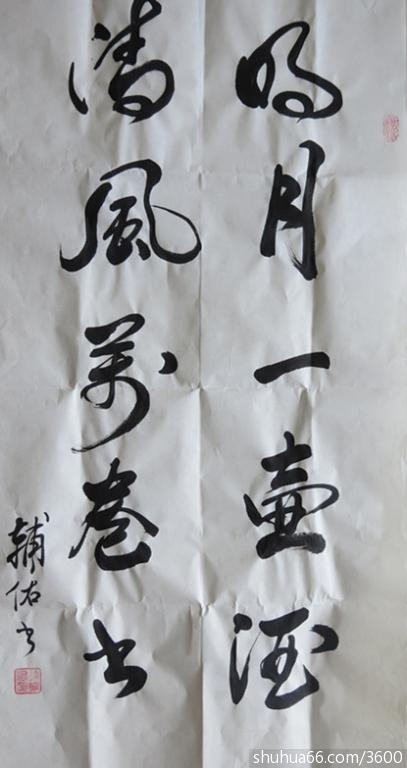 明月一壶酒
清風萬卷书
輔佑书
shuhua66.com/3600